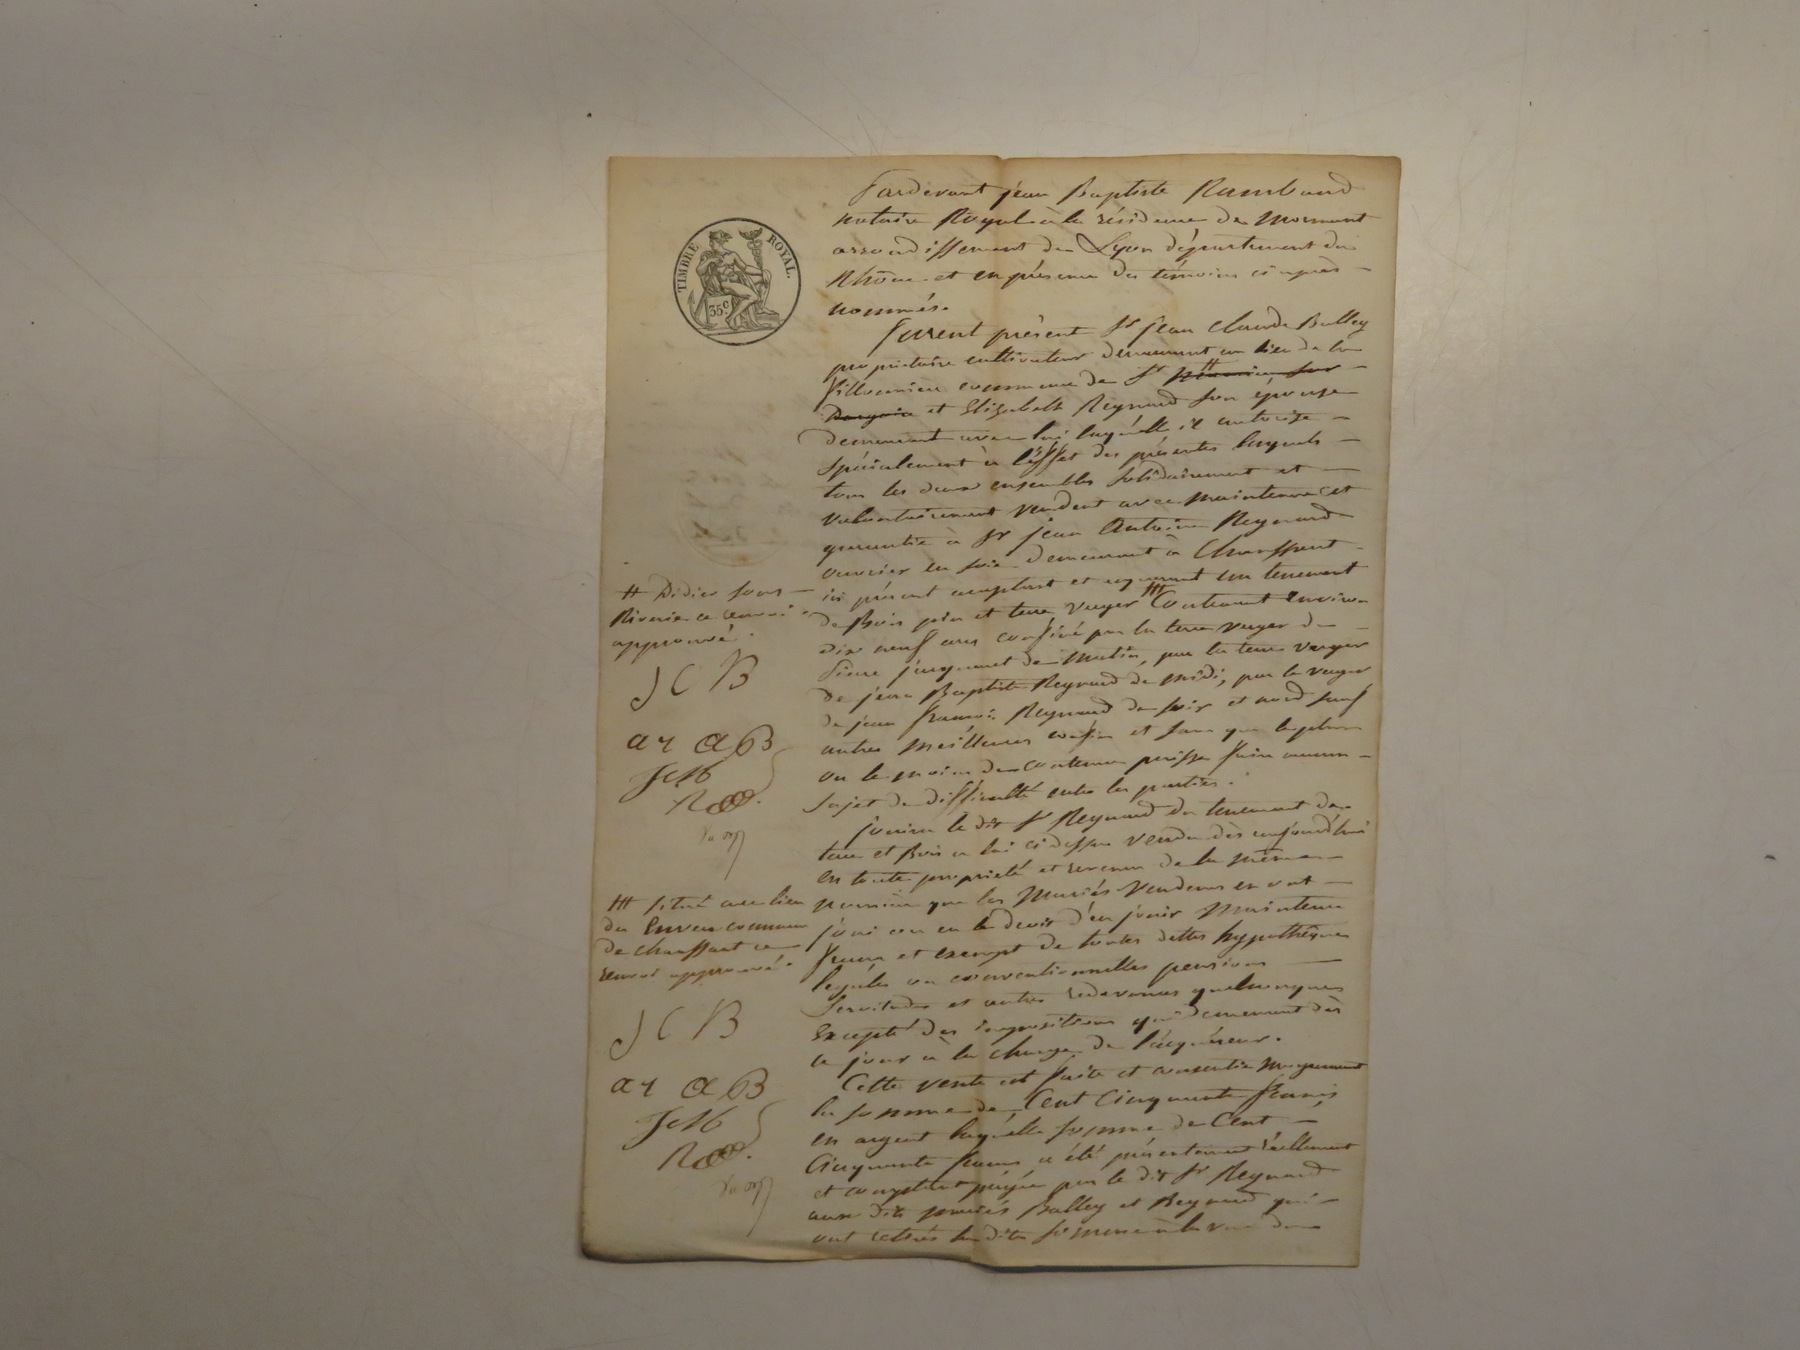 TIMBRE ROYAL.
35c
Pardevant jean Baptiste Rambaud
notaire Royal à la résidence de Mornant
arrondissement de Lyon département du
Rhône et en présence des témoins ci après
nommés.
Furent présent Sr jean Claude Balley
propriétaire cultivateur demeurant au lieu de la
commune de St
et Elizabeth Reynard son épouse
demeurant avec lui laquelle il autorise
spécialement à l'effet des présentes lesquels
tous les deux ensembles solidairement et
volontairement vendent avec maintenue et
garantie à Sr jean Antoine Reynard
ouvrier en soie demeurant à Chaussant
ici présent acceptant et acquerant un tenement
de Bois pin et terre verger ## Contenant environ
dix neuf ares confiné par la terre verger de
Pierre jacquemet de matin, par la terre verger
de jean Baptiste Reynard de midi, par le verger
de jean francois Reynard de soir et nord sauf
autres meilleurs confins et sans que le plus
ou le moins de contenue puisse faire aucun
sujet de difficulté entre les parties.
jouira le dit Sr Reynard du tenement de
terre et Bois a lui ci dessus vendu dès aujourd'hui
en toute propriété et revenu de la même
manière que les mariés vendeurs en ont
joui ou eu le droit d'en jouir maintenu
franc et exempt de toutes dettes hypothèques
légales ou conventionnelles pensions
servitudes et autres redevances quelconques
Excepté des impositions qui demeurent dès
ce jour à la charge de l'acquéreur.
Cette vente est faite et consentie moyennant
la somme de Cent Cinquante francs
en argent laquelle somme de Cent
Cinquante francs a été présentement réellement
et comptant payée par le dit Sr Reynard
aux dits mariés Balley et Reynard qui
ont retirés la dite somme à la vue de
# Didier sous
Riverie ce renvoi
approuvé.
J C B
ar aB
## situé au lieu
du commune
de chaussant ce
renvoi approuvé.
J C B
ar aB